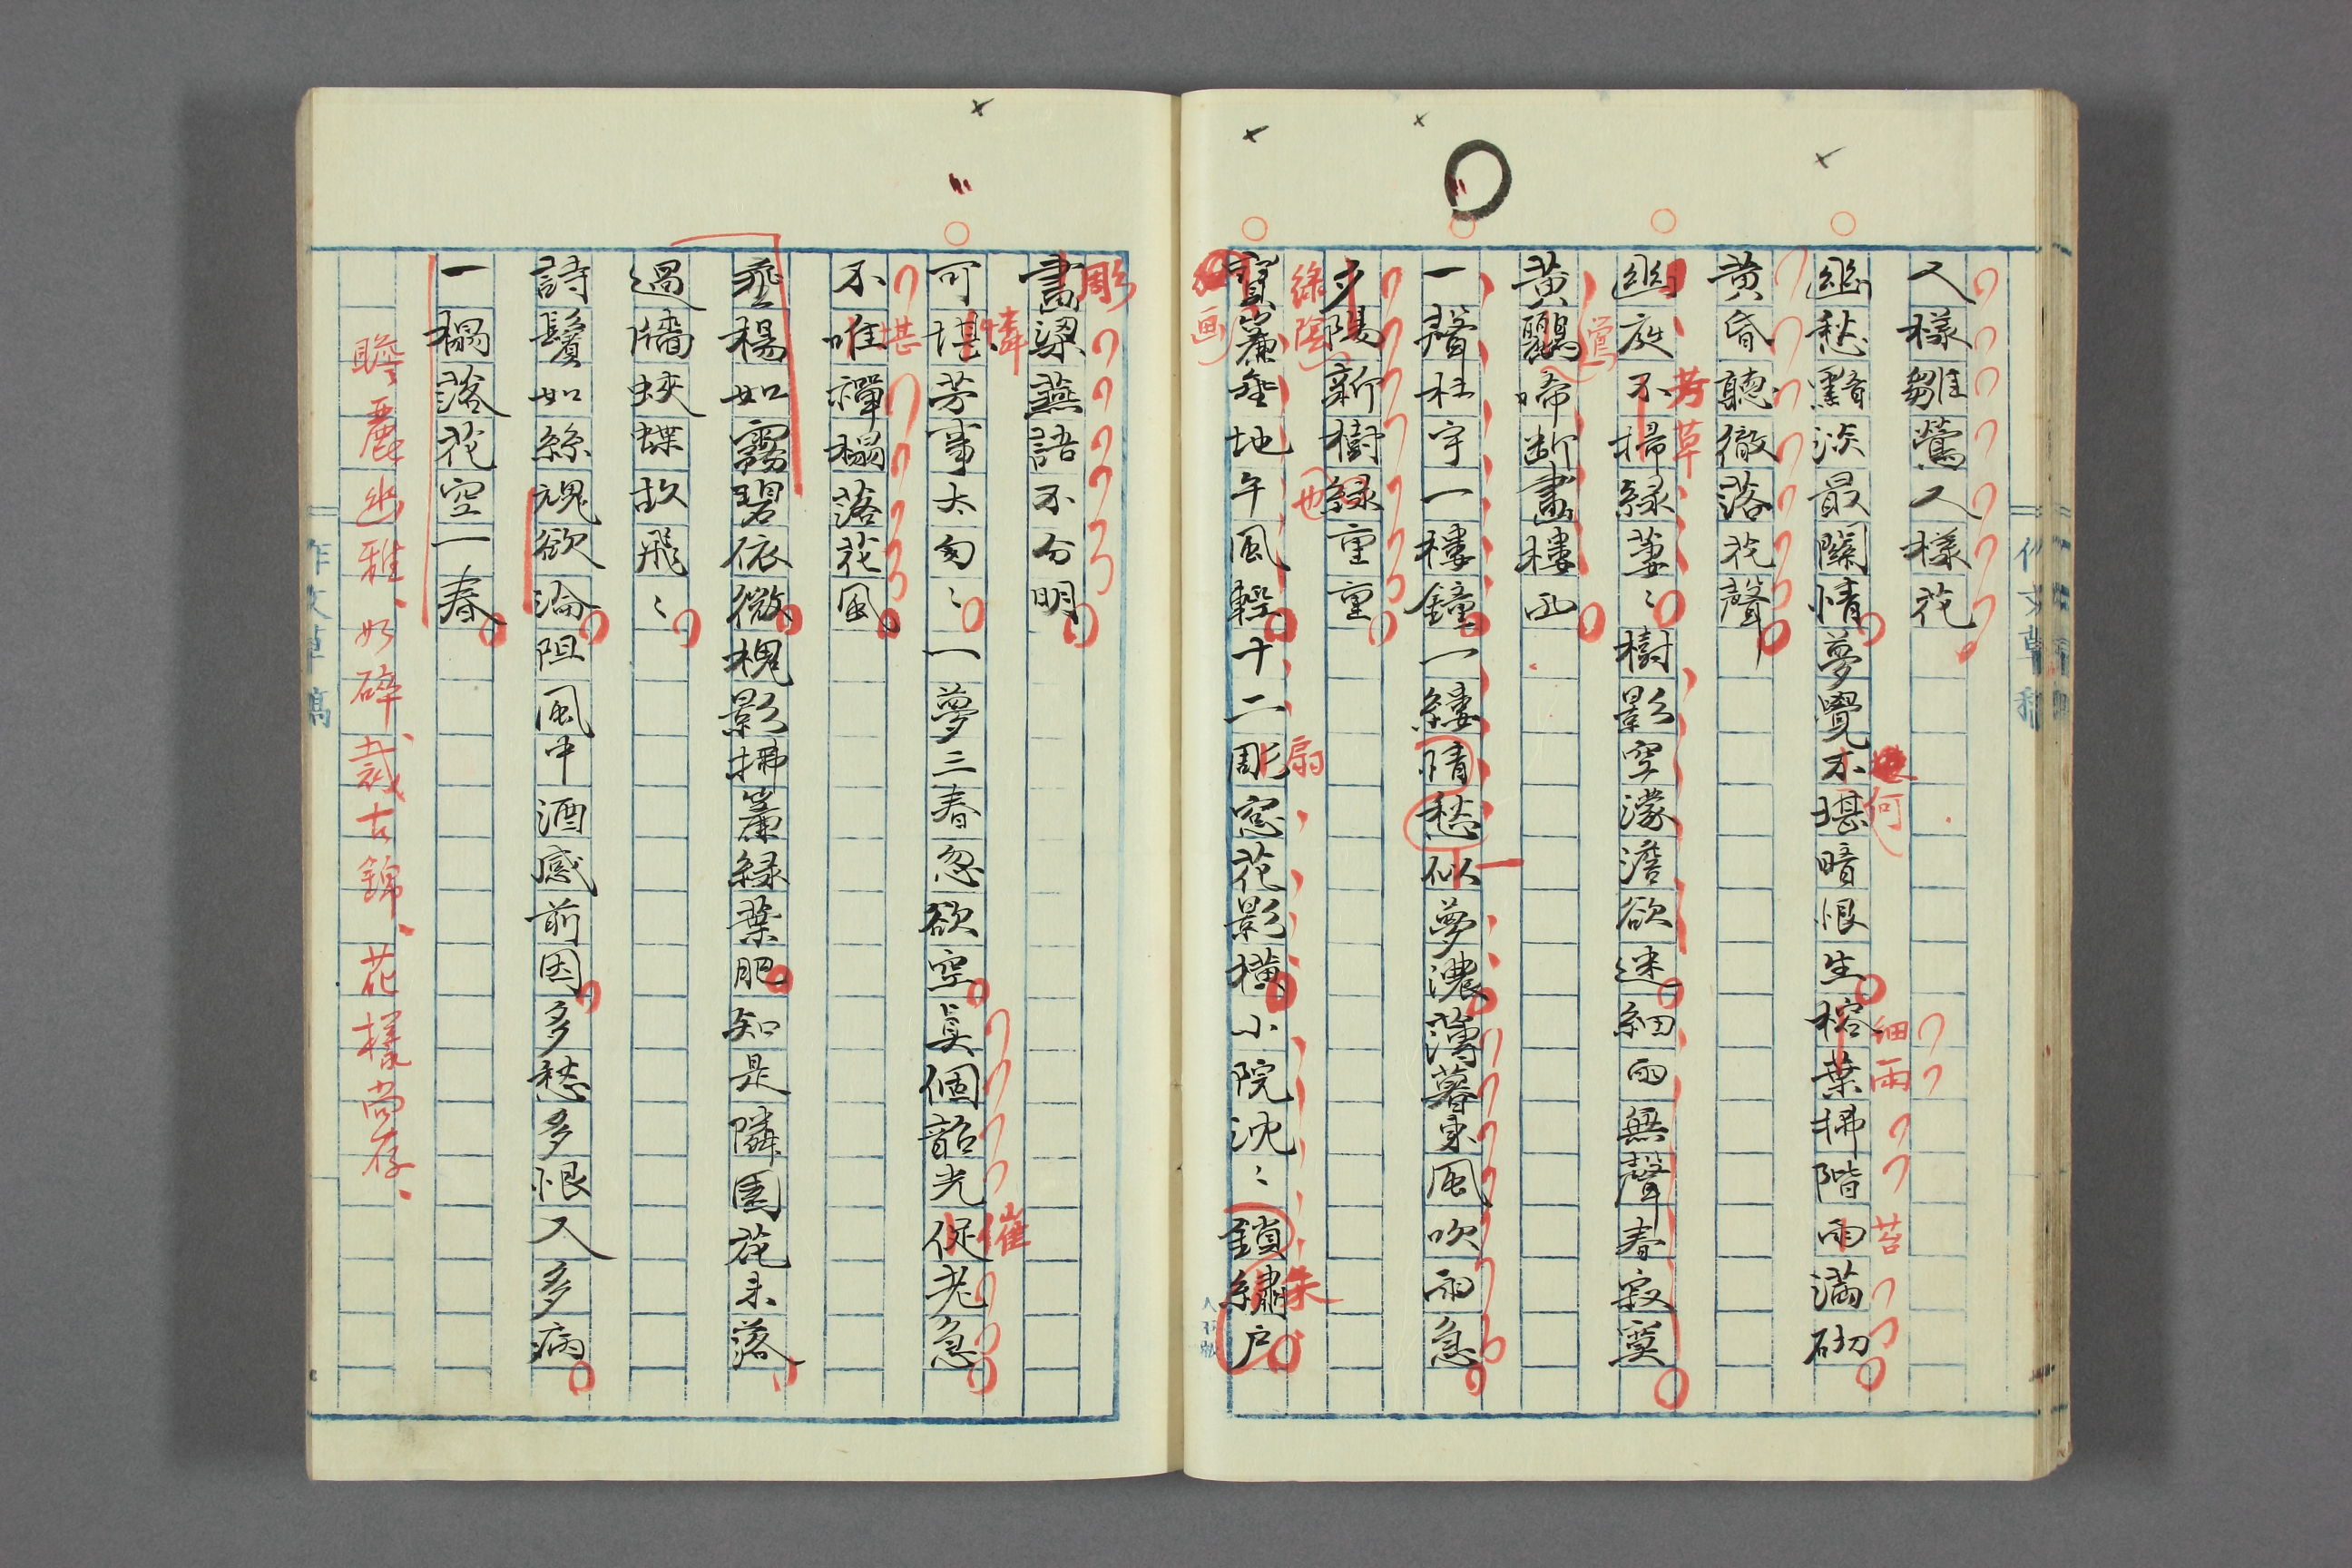 人樣雛鶯人樣花
幽愁黯淡最關情夢覺不堪暗恨生榕葉拂階雨滿砌
何
細雨
苔
黄昏聽徹落花聲
幽庭不掃緑萋〻樹影空濛澹欲迷細雨無聲春寂寞
芳草
黄鸝啼断畫樓西
鶯
一聲杜宇一樓鐘一縷情愁似夢濃薄暮東風吹雨急
夕陽新樹緑重重
綠陰
寶簾垂地午風輕十二彫窓花影横小院沈〻鎖繡戸
画
扇
朱
畵梁燕語不分明
彫
可堪芳事太匆〻一夢三春忽欲空真個韶光促老急
憐
催
不唯禪榻落花風
堪
垂楊如霧碧依微槐影拂簾緑葉肥知是隣園花未落
過牆蛺蝶故飛〻
詩鬢如絲魂欲淪阻風中酒感前因多愁多恨人多病
一榻落花空一春
瞻麗幽雅、如碎裁古錦、花樣尚存、
作文草稿